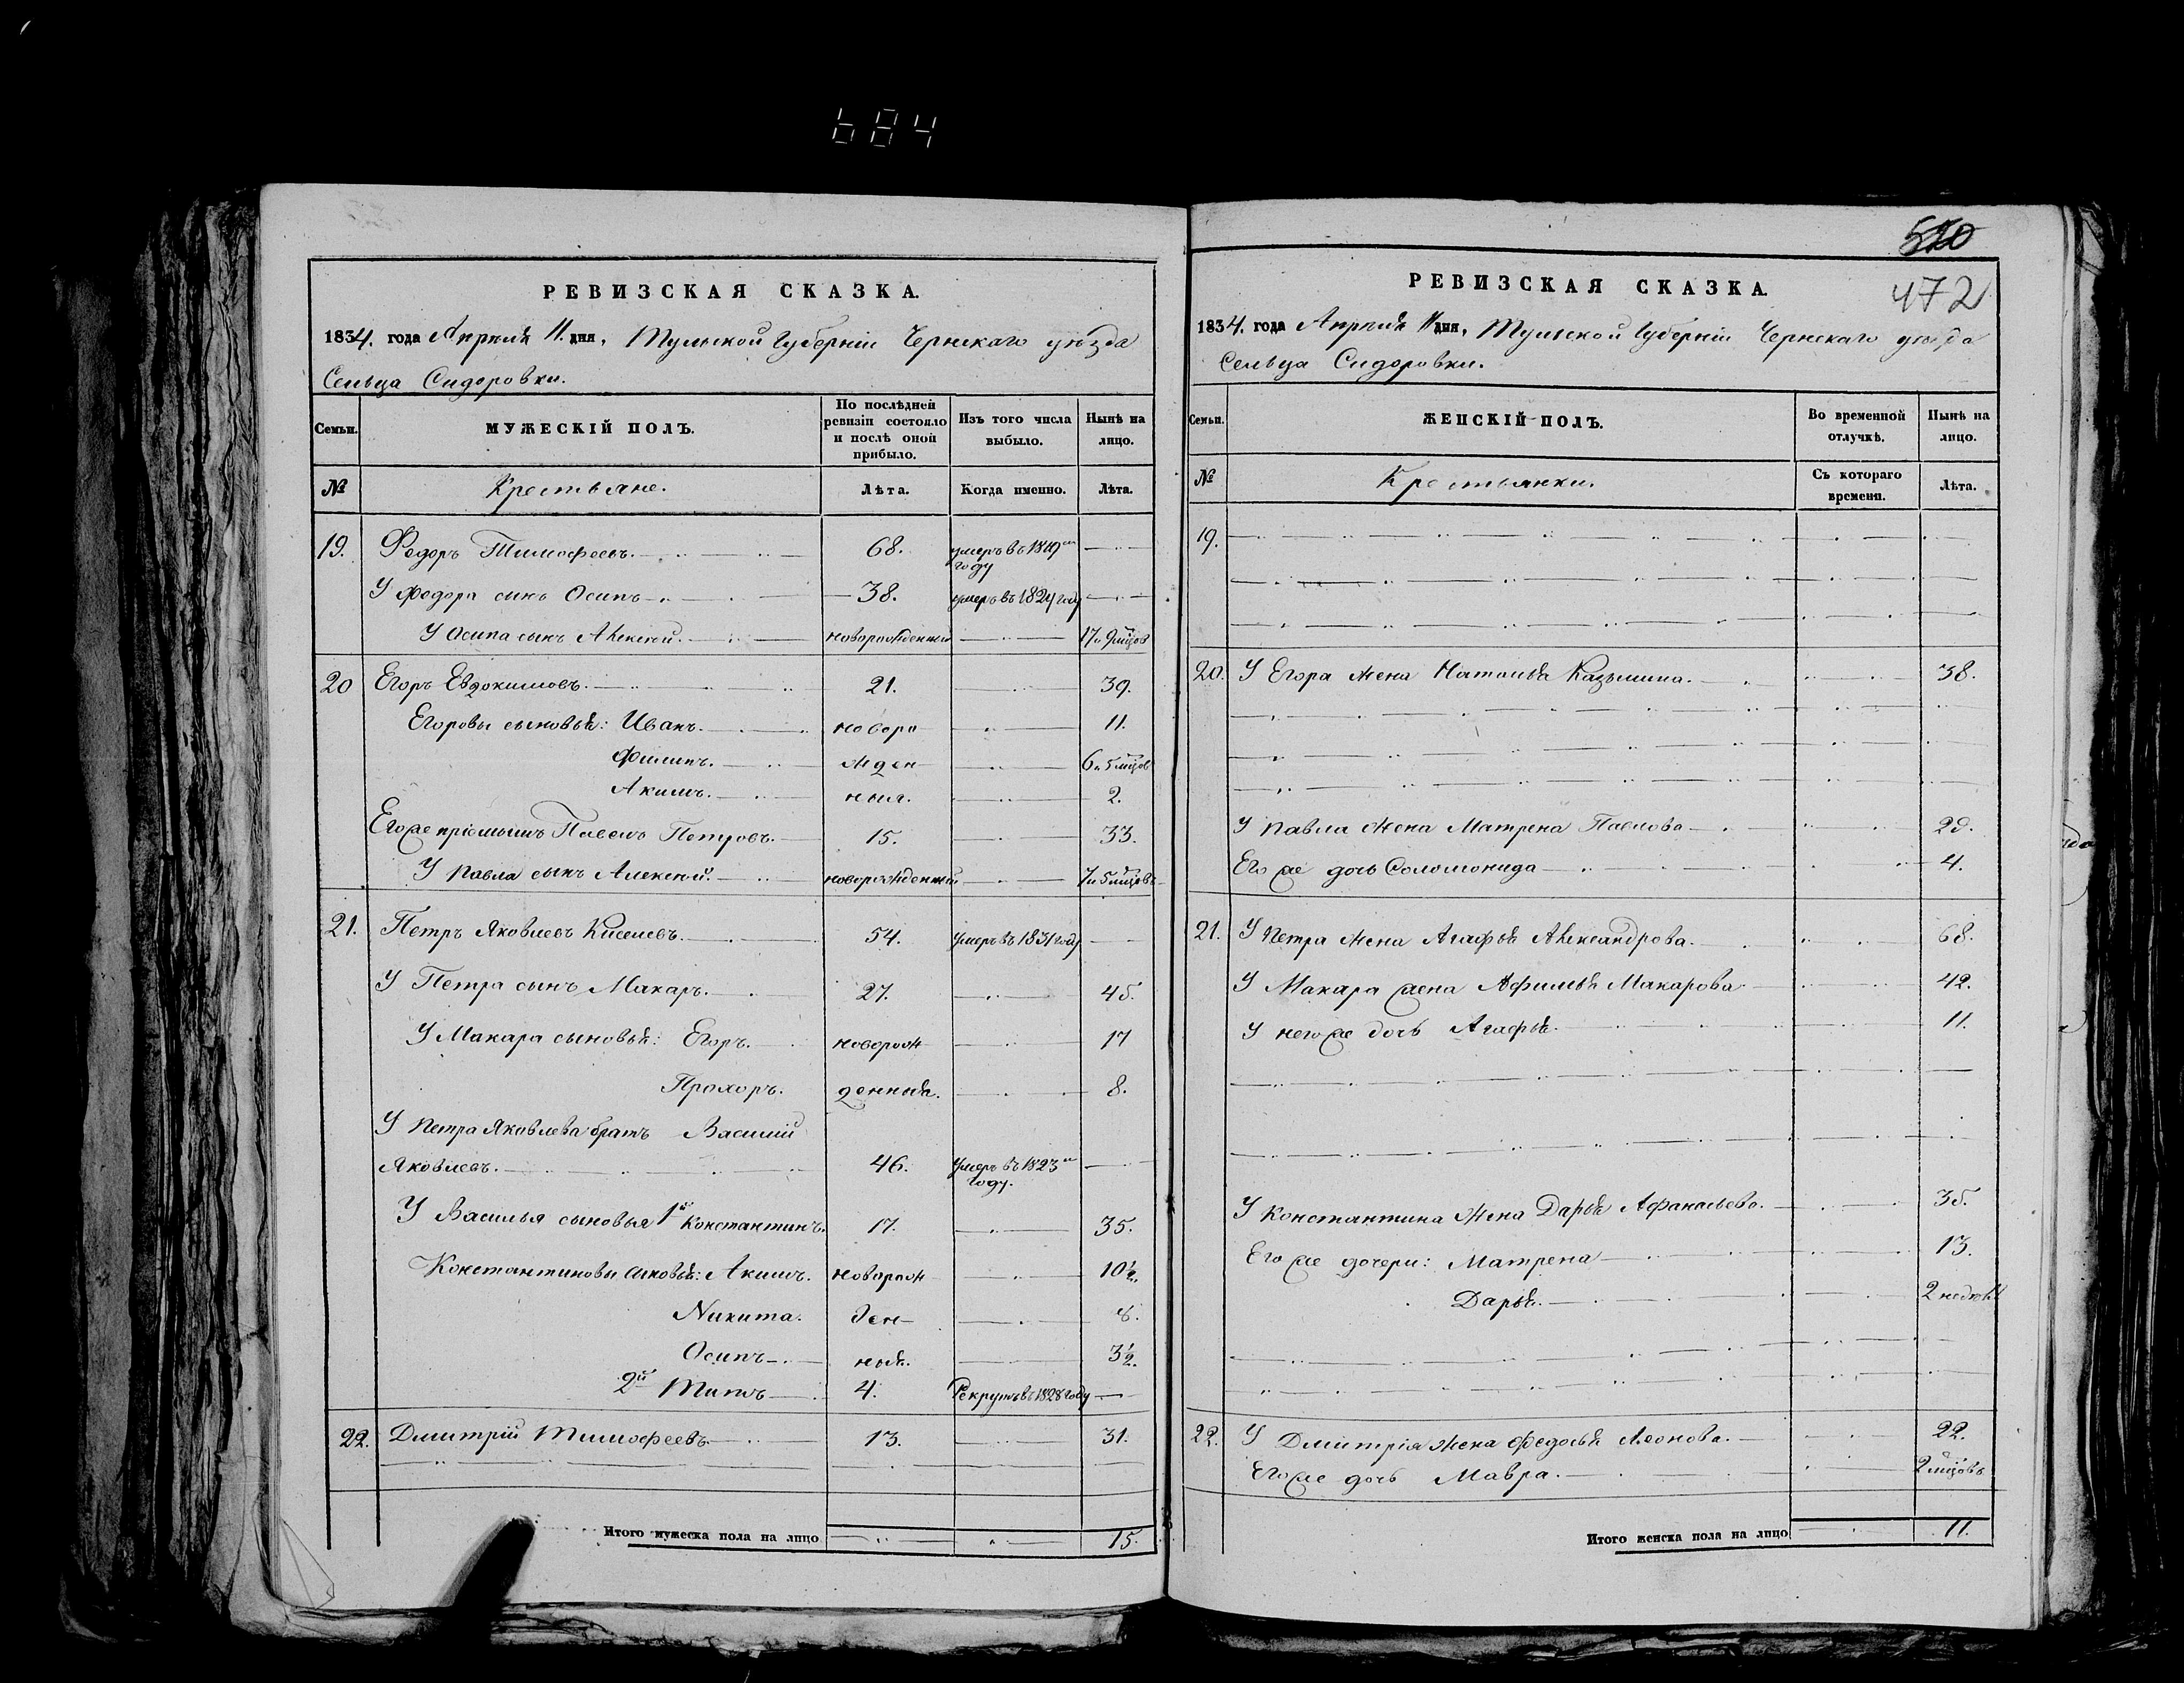 684
РЕВИЗСКАЯ СКАЗКА.
1834. года Апрѣля 11. дня, Тульской Губерніи Чернскаго уѣзда
Сельца Сидоровки.
Семьи.
МУЖЕСКІЙ ПОЛЪ.
По послѣдней ревизіи состояло и послѣ оной прибыло.
Изъ того числа выбыло.
Нынѣ на лицо.
№
Крестьяне.
Лѣта.
Когда именно.
Лѣта.
19. Федоръ Тимофеевъ. 68. умеръ въ 1819м году
У Федора сынъ Осипъ 38. умеръ въ 1824 году
У Осипа сынъ Алексей. новорожденный 17 и 9 мцов
20 Егоръ Евдокимовъ. 21. 39.
Егоровы сыновья: Иванъ. новоро 11.
Филипъ. жден 6 и 5 мцов
Акимъ. ныя. 2.
Его же пріемышъ Павелъ Петровъ. 15. 33.
У Павла сынъ Алексей. новорожденный 7 и 5 мцовъ
21. Петръ Яковлевъ Киселевъ. 54. умеръ въ 1831 году
У Петра сынъ Макаръ. 27. 45.
У Макара сыновья: Егоръ. новорож 17
Прохоръ. денныя. 8.
У Петра Яковлева братъ Василий
Яковлевъ. 46. умеръ въ 1823м году.
У Василья сыновья 1й Константинъ. 17. 35.
Константиновы сыновья: Акимъ. новорож 10½.
Никита. ден 8.
Осипъ ныя. 3½.
2й Титъ 4. Рекрутъ въ 1828 году
22. Дмитрій Тимофеевъ. 13. 31.
Итого мужеска пола на лицо 15.
520
472
РЕВИЗСКАЯ СКАЗКА.
1834. года Апрѣля 11 дня, Тульской Губерніи Чернскаго уѣзда
Сельца Сидоровки.
Семьи.
ЖЕНСКІЙ ПОЛЪ.
Во временной отлучкѣ.
Нынѣ на лицо.
№
Крестьянки.
Съ котораго времени.
Лѣта.
19.
20. У Егора жена Наталья Казьмина. 38.
У Павла жена Матрена Павлова 29.
Его же дочь Соломонида 4.
21. У Петра жена Агафья Александрова. 68.
У Макара жена Афимья Макарова 42.
У него же дочь Агафья. 11.
У Константина жена Дарья Афанасьева. 35.
Его же дочери: Матрена 13.
Дарья. 2 недели
22. У Дмитрія жена Федосья Леонова. 22.
Его же дочь Мавра. 2 мцовъ
Итого женска пола на лицо 11.